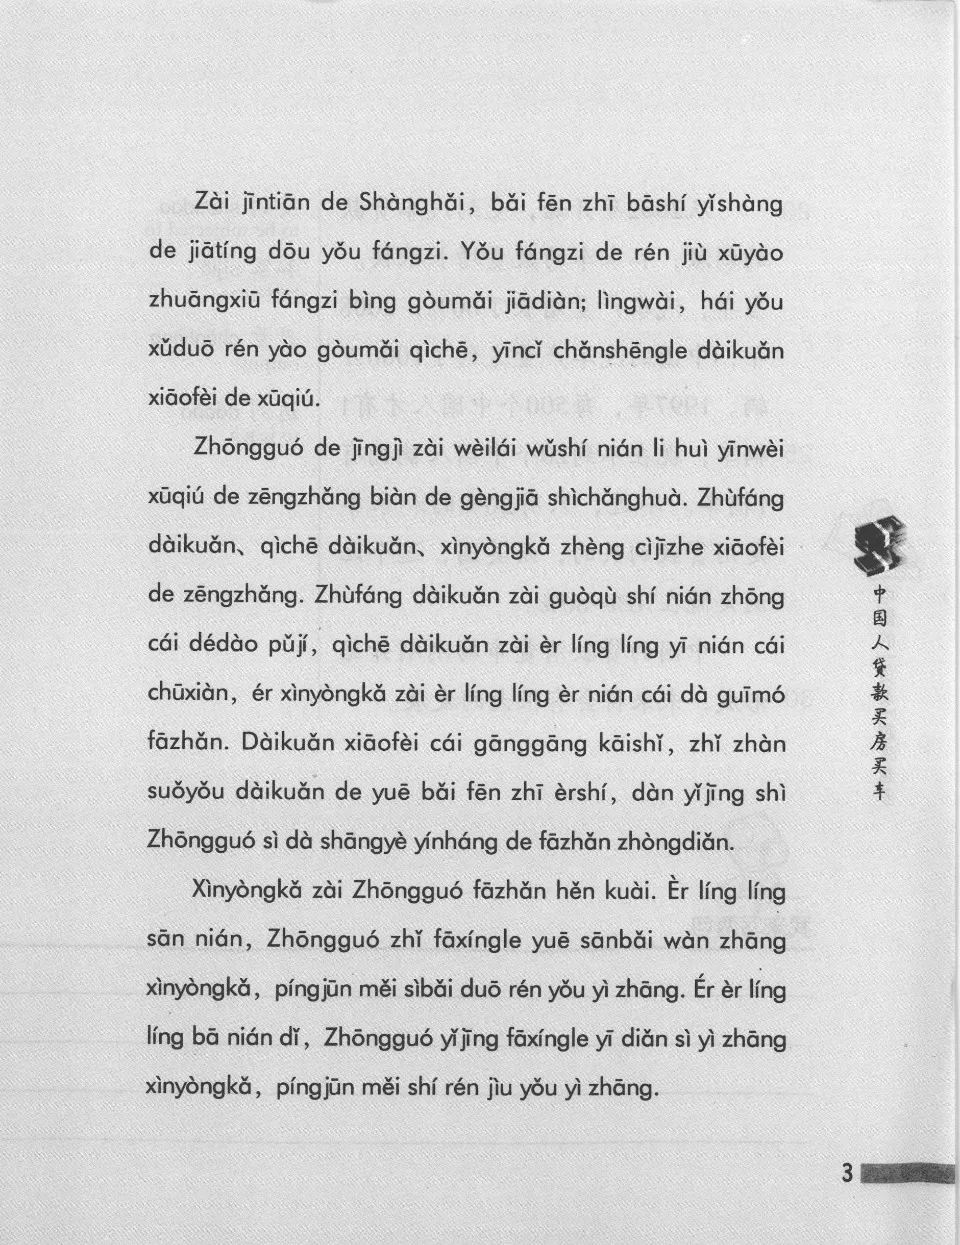 Zài jīntiān de Shànghǎi, bǎi fēn zhī bāshí yǐshàng
de jiātíng dōu yǒu fángzi. Yǒu fángzi de rén jiù xūyào
zhuāngxiū fángzi bìng gòumǎi jiādiàn; lìngwài, hái yǒu
xǔduō rén yào gòumǎi qìchē, yīncǐ chǎnshēngle dàikuǎn
xiāofèi de xūqiú.
Zhōngguó de jīngjì zài wèilái wǔshí nián li huì yīnwèi
xūqiú de zēngzhǎng biàn de gèngjiā shìchǎnghuà. Zhùfáng
dàikuǎn、qìchē dàikuǎn、xìnyòngkǎ zhèng cìjīzhe xiāofèi
de zēngzhǎng. Zhùfáng dàikuǎn zài guòqù shí nián zhōng
cái dédào pǔjí, qìchē dàikuǎn zài èr líng líng yī nián cái
chūxiàn, ér xìnyòngkǎ zài èr líng líng èr nián cái dà guīmó
fāzhǎn. Dàikuǎn xiāofèi cái gānggāng kāishǐ, zhǐ zhàn
suǒyǒu dàikuǎn de yuē bǎi fēn zhī èrshí, dàn yǐjīng shì
Zhōngguó sì dà shāngyè yínháng de fāzhǎn zhòngdiǎn.
Xìnyòngkǎ zài Zhōngguó fāzhǎn hěn kuài. Èr líng líng
sān nián, Zhōngguó zhǐ fāxíngle yuē sānbǎi wàn zhāng
xìnyòngkǎ, píngjūn měi sìbǎi duō rén yǒu yì zhāng. Ér èr líng
líng bā nián dǐ, Zhōngguó yǐjīng fāxíngle yī diǎn sì yì zhāng
xìnyòngkǎ, píngjūn měi shí rén jìu yǒu yì zhāng.
中国人贷款买房买车
3